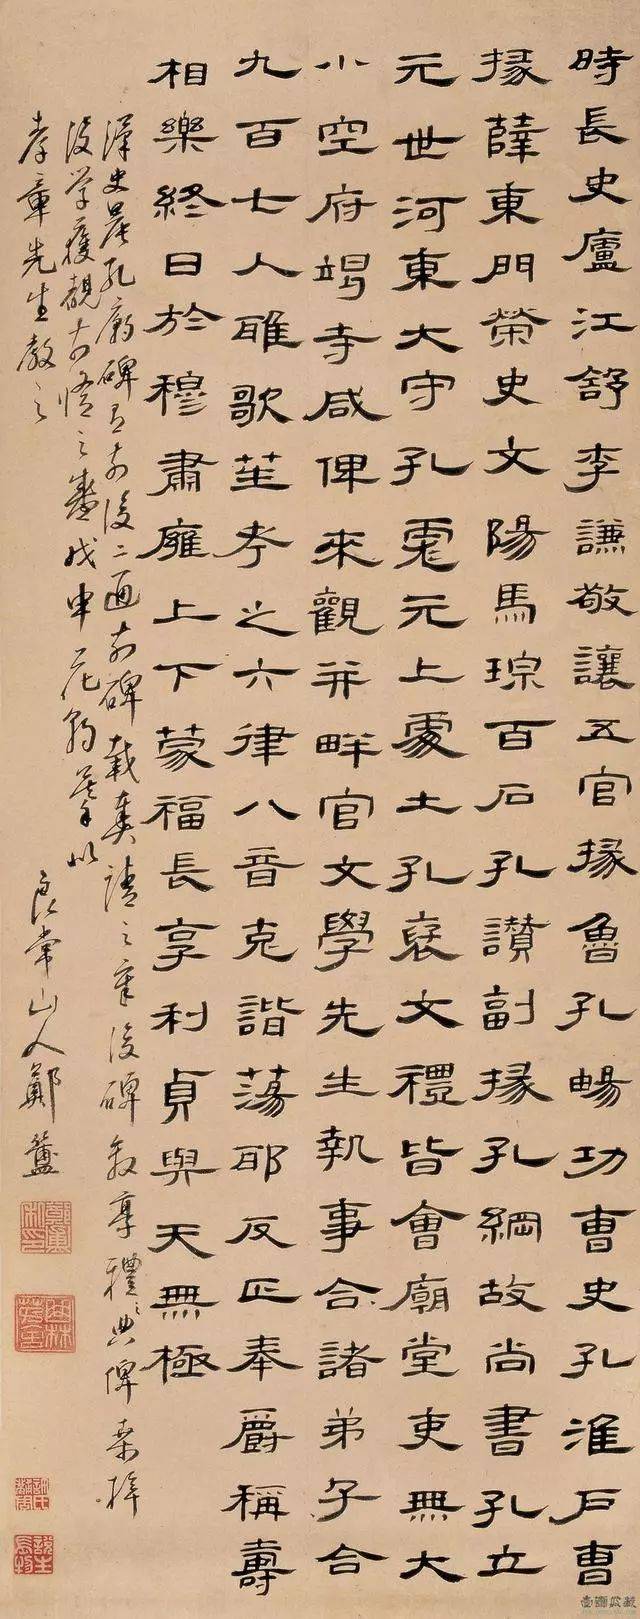 時長史廬江舒李謙敬讓五官掾魯孔暢功曹史孔淮戶曹
掾薛東門榮史文陽馬琮百石孔讃副掾孔綱故尚書孔立
元世河東大守孔彪元上處土孔褒文禮皆會廟堂吏無大
小空府竭寺咸俾來觀并畔官文學先生執事合諸弟子合
九百七人雅歌笙考之六律八音克諧蕩耶反正奉爵稱壽
相樂終日於穆肅廱上下蒙福長享利貞與天無極
漢史晨孔廟碑有前後二通前碑載奏請之章後碑敘享禮之典俾桑梓
後學獲觀之盛戊申花朝摹似
孝章先生教之
良常山人鄭簠